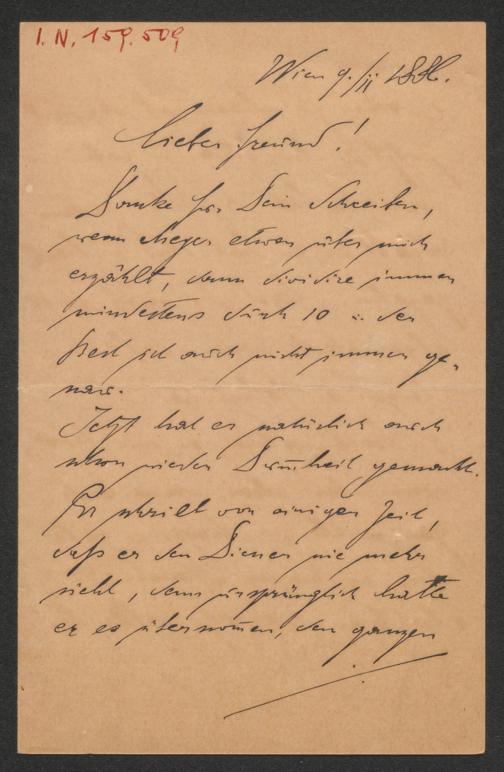 I. N. 159.509
Wien 9./II 1886.
Lieber Freund!
Danke für Dein Schreiben,
wenn Mayer etwas über mich
erzählt, dann dividire immer
mindestens durch 10 u. der
Rest ist auch nicht immer ge-
nau.
Jetzt hat er natürlich auch
schon wieder Dummheit gemacht.
Er schrieb vor einiger Zeit,
daß er den Diener nie mehr
sieht, denn ursprünglich hatte
er es übernommen, den ganzen